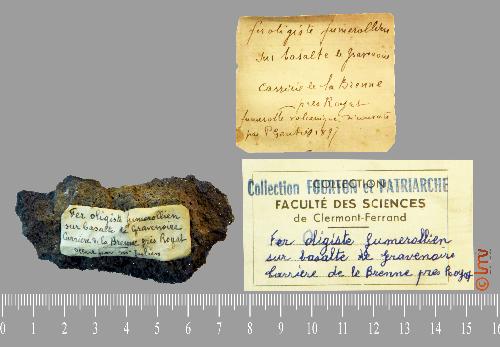 fer oligiste fumerollien
sur basalte de Gravenoire
Carrière de la Brenne
près Royat
fumerolle volcanique
par 1897
Fer oligiste fumerollien
sur basalte de Gravenoire
Carrière de la Brenne près Royat
Collection FOURTON et PATRIARCHE
COLLECTION
FACULTÉ DES SCIENCES
de Clermont-Ferrand
Fer oligiste fumerollien
sur basalte de Gravenoire
Carrière de la Brenne près Royat
© lmv
0 1 2 3 4 5 6 7 8 9 10 11 12 13 14 15 16